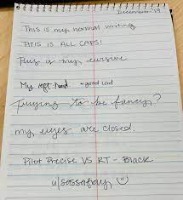 This is my normal writing
THIS IS ALL CAPS!
This is my cursive
My left hand - good lord
Trying to be fancy?
my eyes are closed.
Pilot Precise V5 RT - Black
u/sassafray